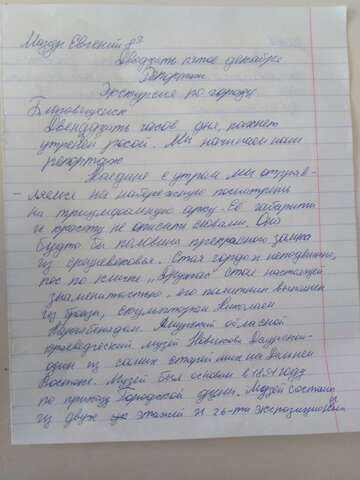 Мазур Евгений 8З
Двадцать пятое декабря
Репортаж
Экскурсия по городу.
Благовещенск
Двенадцать часов дня, пахнет
утренней росой. Мы начинаем наш
репортаж
с утрам мы отправ-
ляемся на набережную посмотреть
на триумфальную арку. Её габариты
и красоту не описать словами. Она
будто бы половина прекрасного замка
из средневековья. Стоя гордо и неподвижно,
пёс по кличке „Дружок" стал настоящей
знаменитостью, его памятник выполнен
из бронзы, скульптором Николаем
Карнабедом. Амурский областной
краеведческий музей Новикова Даурского-
один из самых старейших на Дальнем
Востоке. Музей был основан в 1891 году
по приказу Городской думы. Музей состоит
из двух этажей и 26-ти экспозиционных